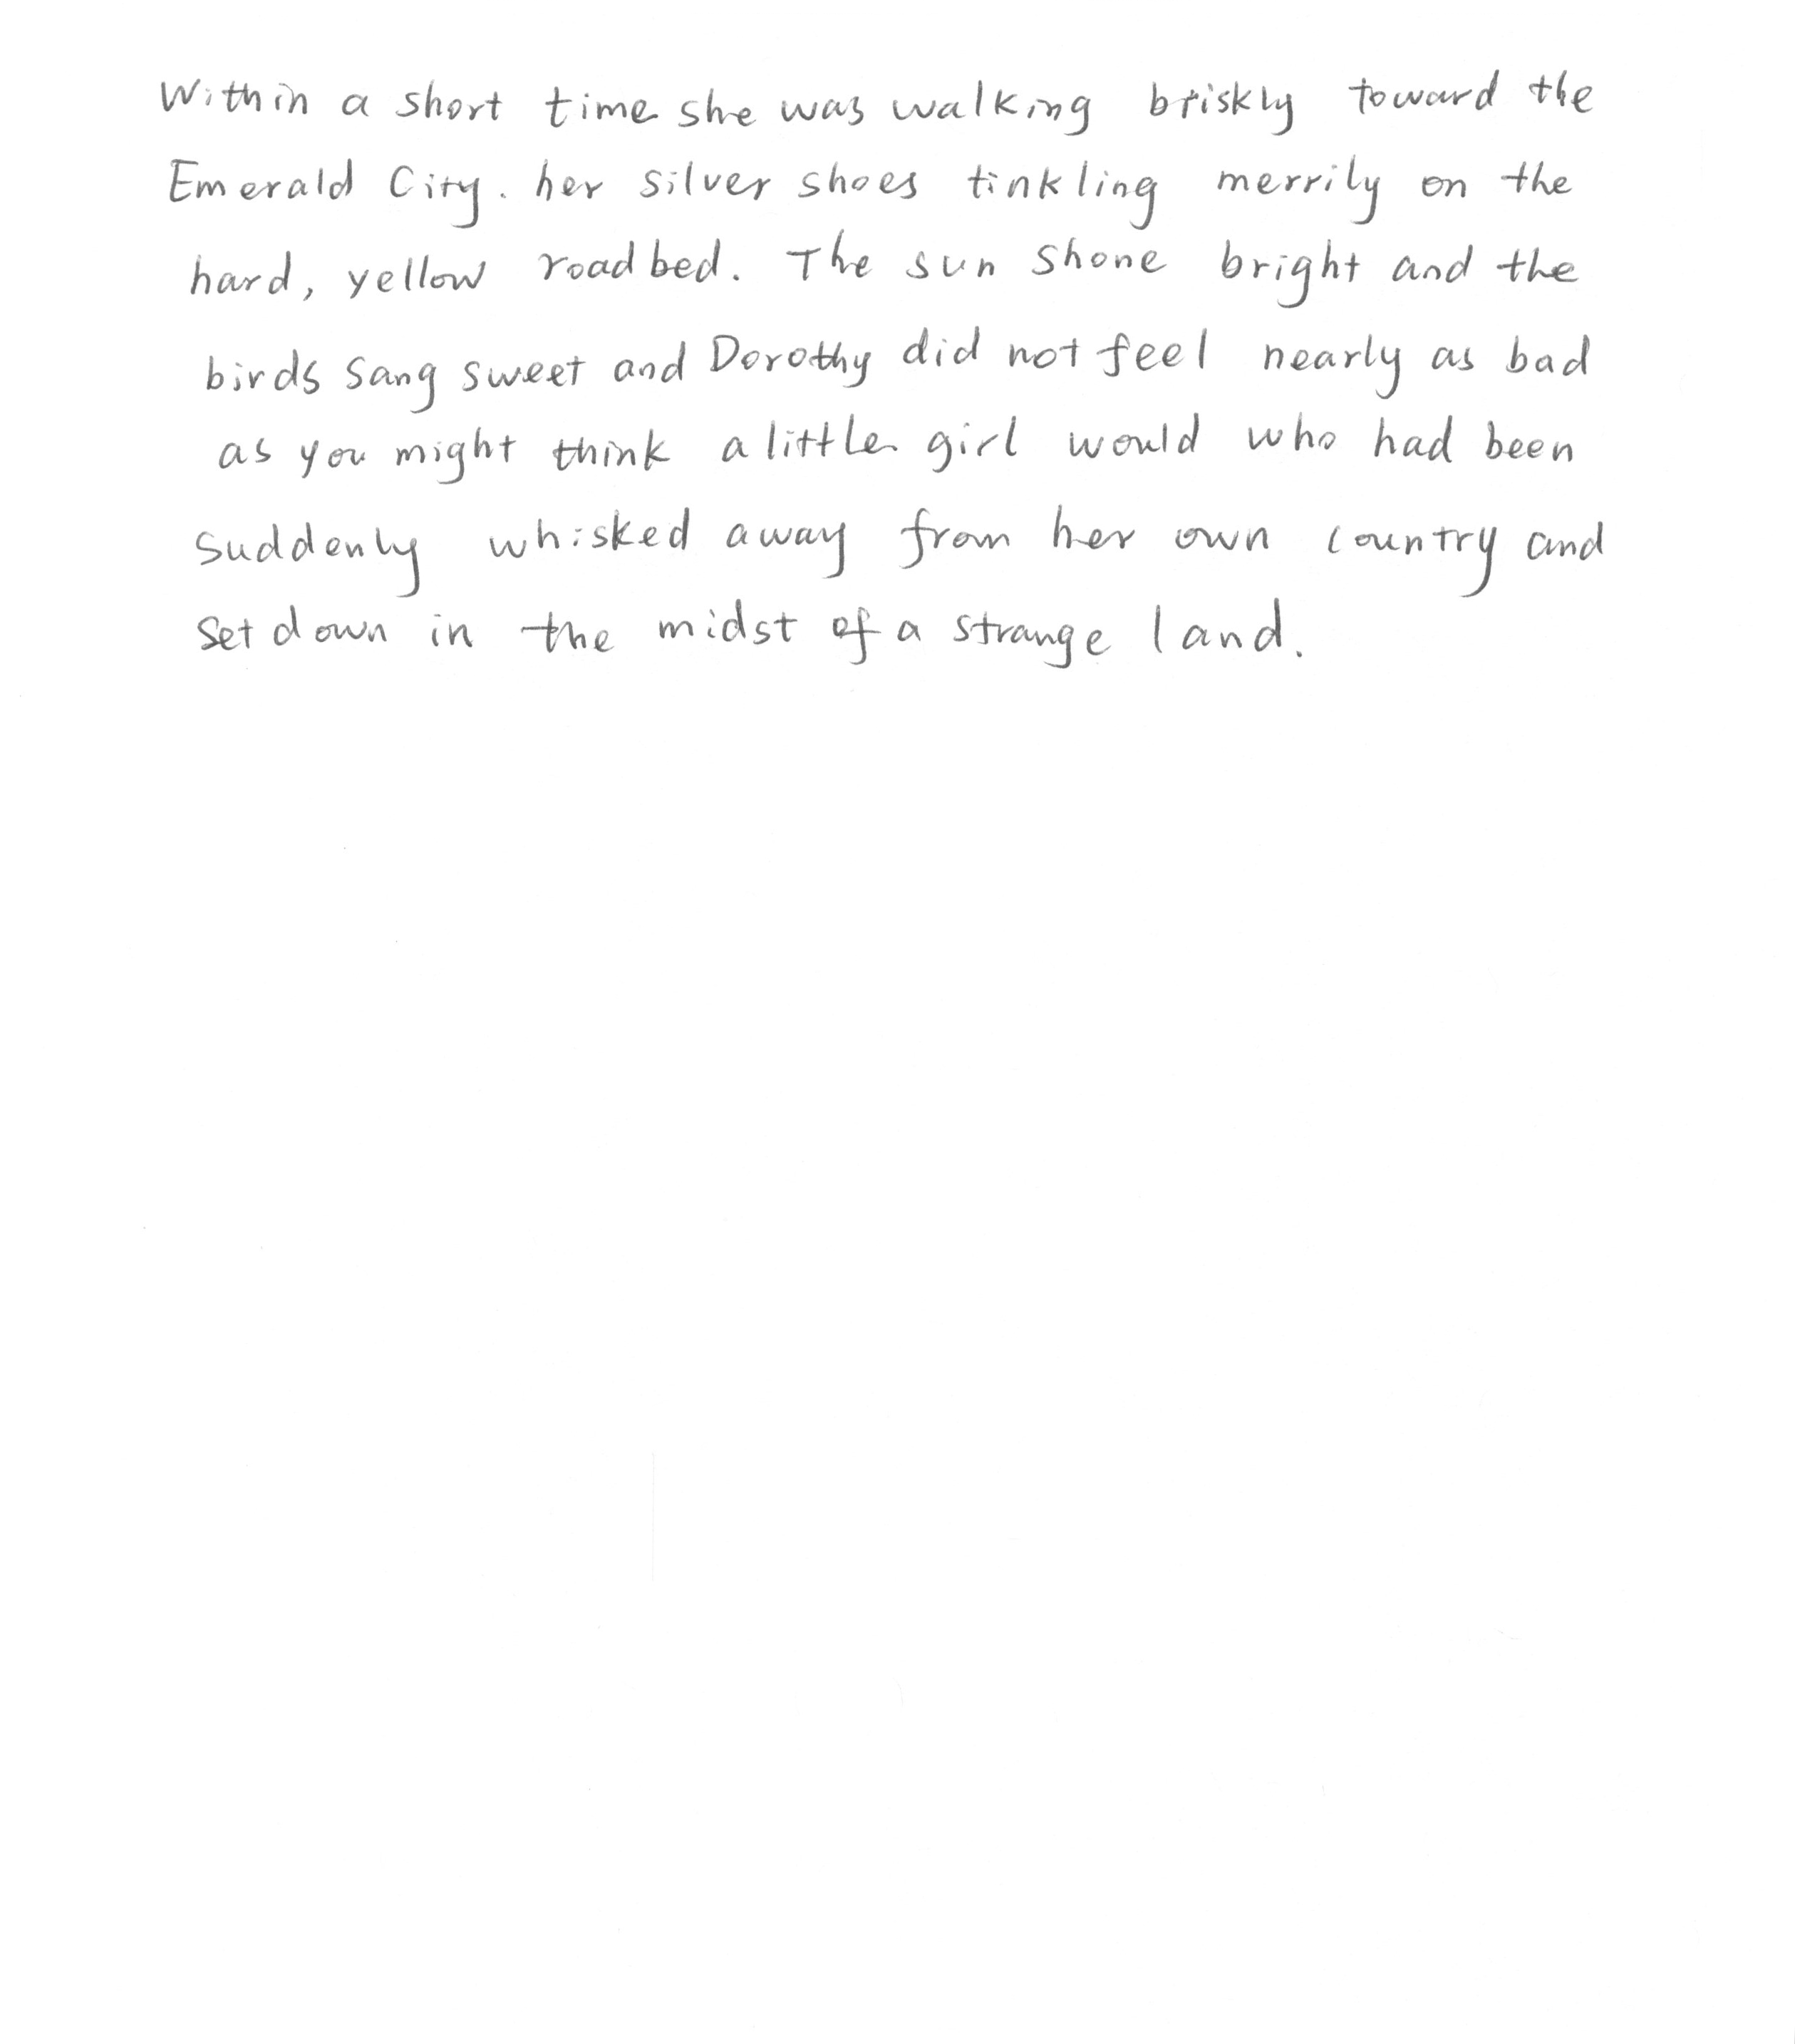 Within a short time she was walking briskly toward the
Emerald City. her silver shoes tinkling merrily on the
hard, yellow roadbed. The sun shone bright and the
birds sang sweet and Dorothy did not feel nearly as bad
as you might think a little girl would who had been
suddenly whisked away from her own country and
set down in the midst of a strange land.